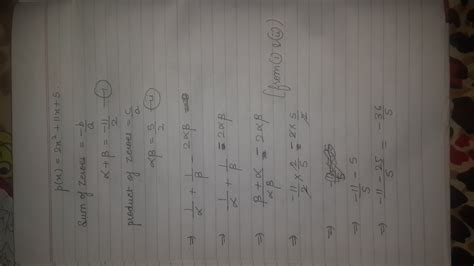 p(x) = 2x² + 11x + 5
Sum of zeroes = -b/a
α + β = -11/2 — (i)
product of zeroes = c/a
αβ = 5/2 — (ii)
⇒ 1/α + 1/β - 2αβ
⇒ 1/α + 1/β - 2αβ
⇒ (β + α)/αβ - 2αβ (from (i) & (ii))
⇒ -11/2 × 2/5 - 2 × 5/2
⇒ -11/5 - 5
⇒ (-11 - 25)/5 = -36/5